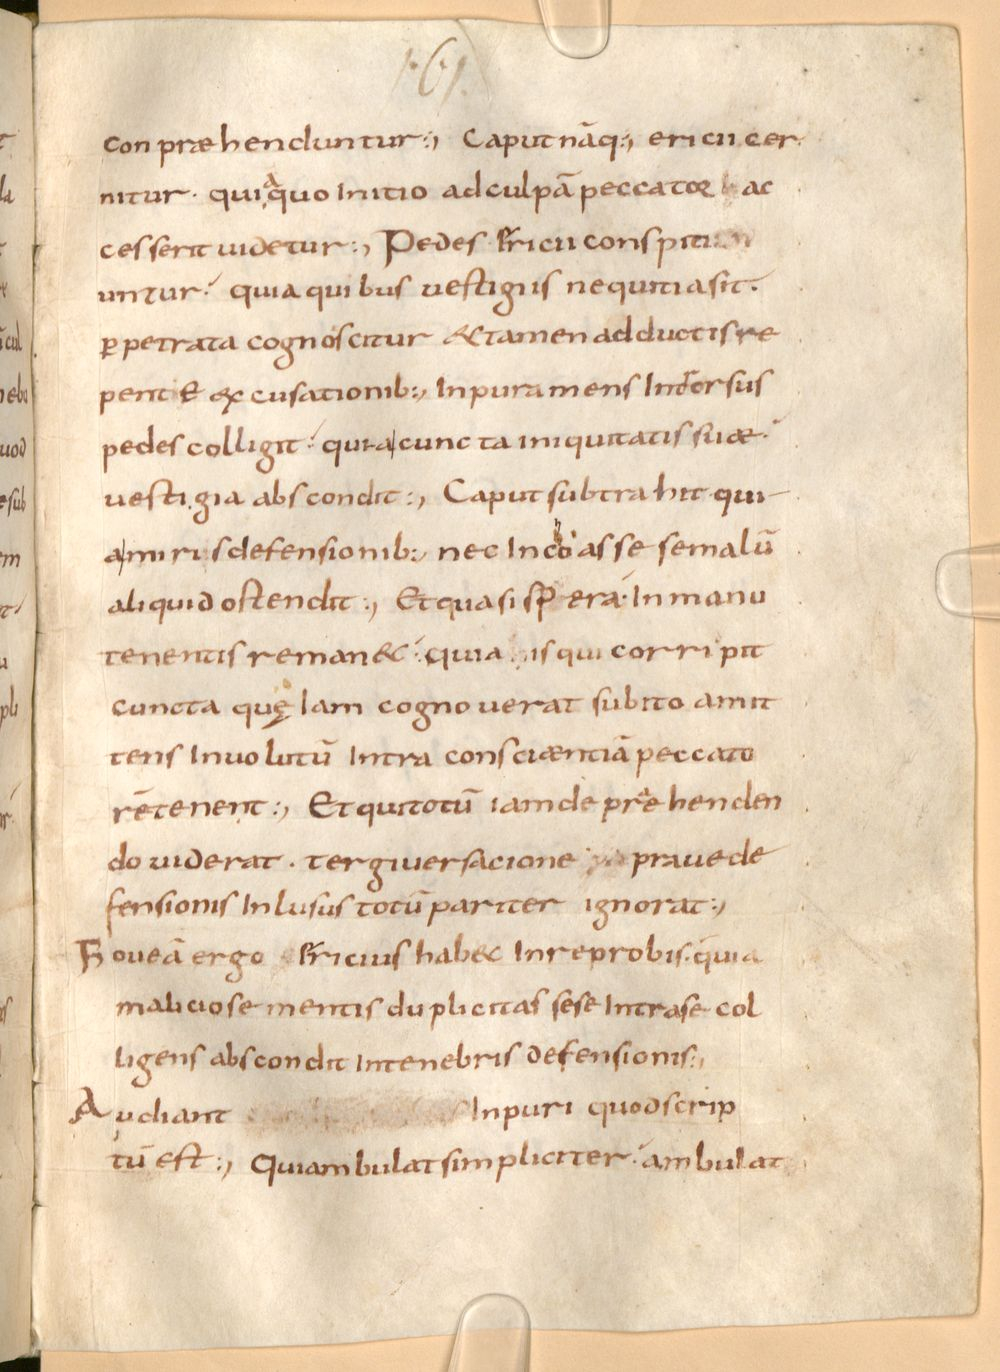 161.
conpræhenduntur:, Caput nāq:, ericii cer
nitur. qui a quo initio ad culpā peccator ac
cesserit uidetur:, Pedes ericii conspici
untur. quia quibus uestigiis nequitia sit.
ꝑpetrata cognoscitur & tamen adductis re
pente excusationib:, Inpura mens Introrsus
pedes colligit. quia cuncta iniquitatis suæ.
uestigia abscondit:, Caput subtrahit qui
a miris defensionib:, nec Incoasse se malū
aliquid ostendit:, Et quasi spera. In manu
tenentis reman&. quia is qui corripit
cuncta quę Iam cognouerat subito amit
tens Inuolutū Intra consciæntiā peccato
rē tenent:, Et qui totū iam depræhenden
do uiderat. tergiuersacione praue de
fensionis Inlusus totū pariter ignorat:,
Foueā ergo ericius hab& In reprobis. quia
maliciose mentis duplicitas sese Intra se col
ligens abscondit In tenebris defensionis:,
Audiant Inpuri quod scrip
tū est:, Qui ambulat simpliciter. ambulat